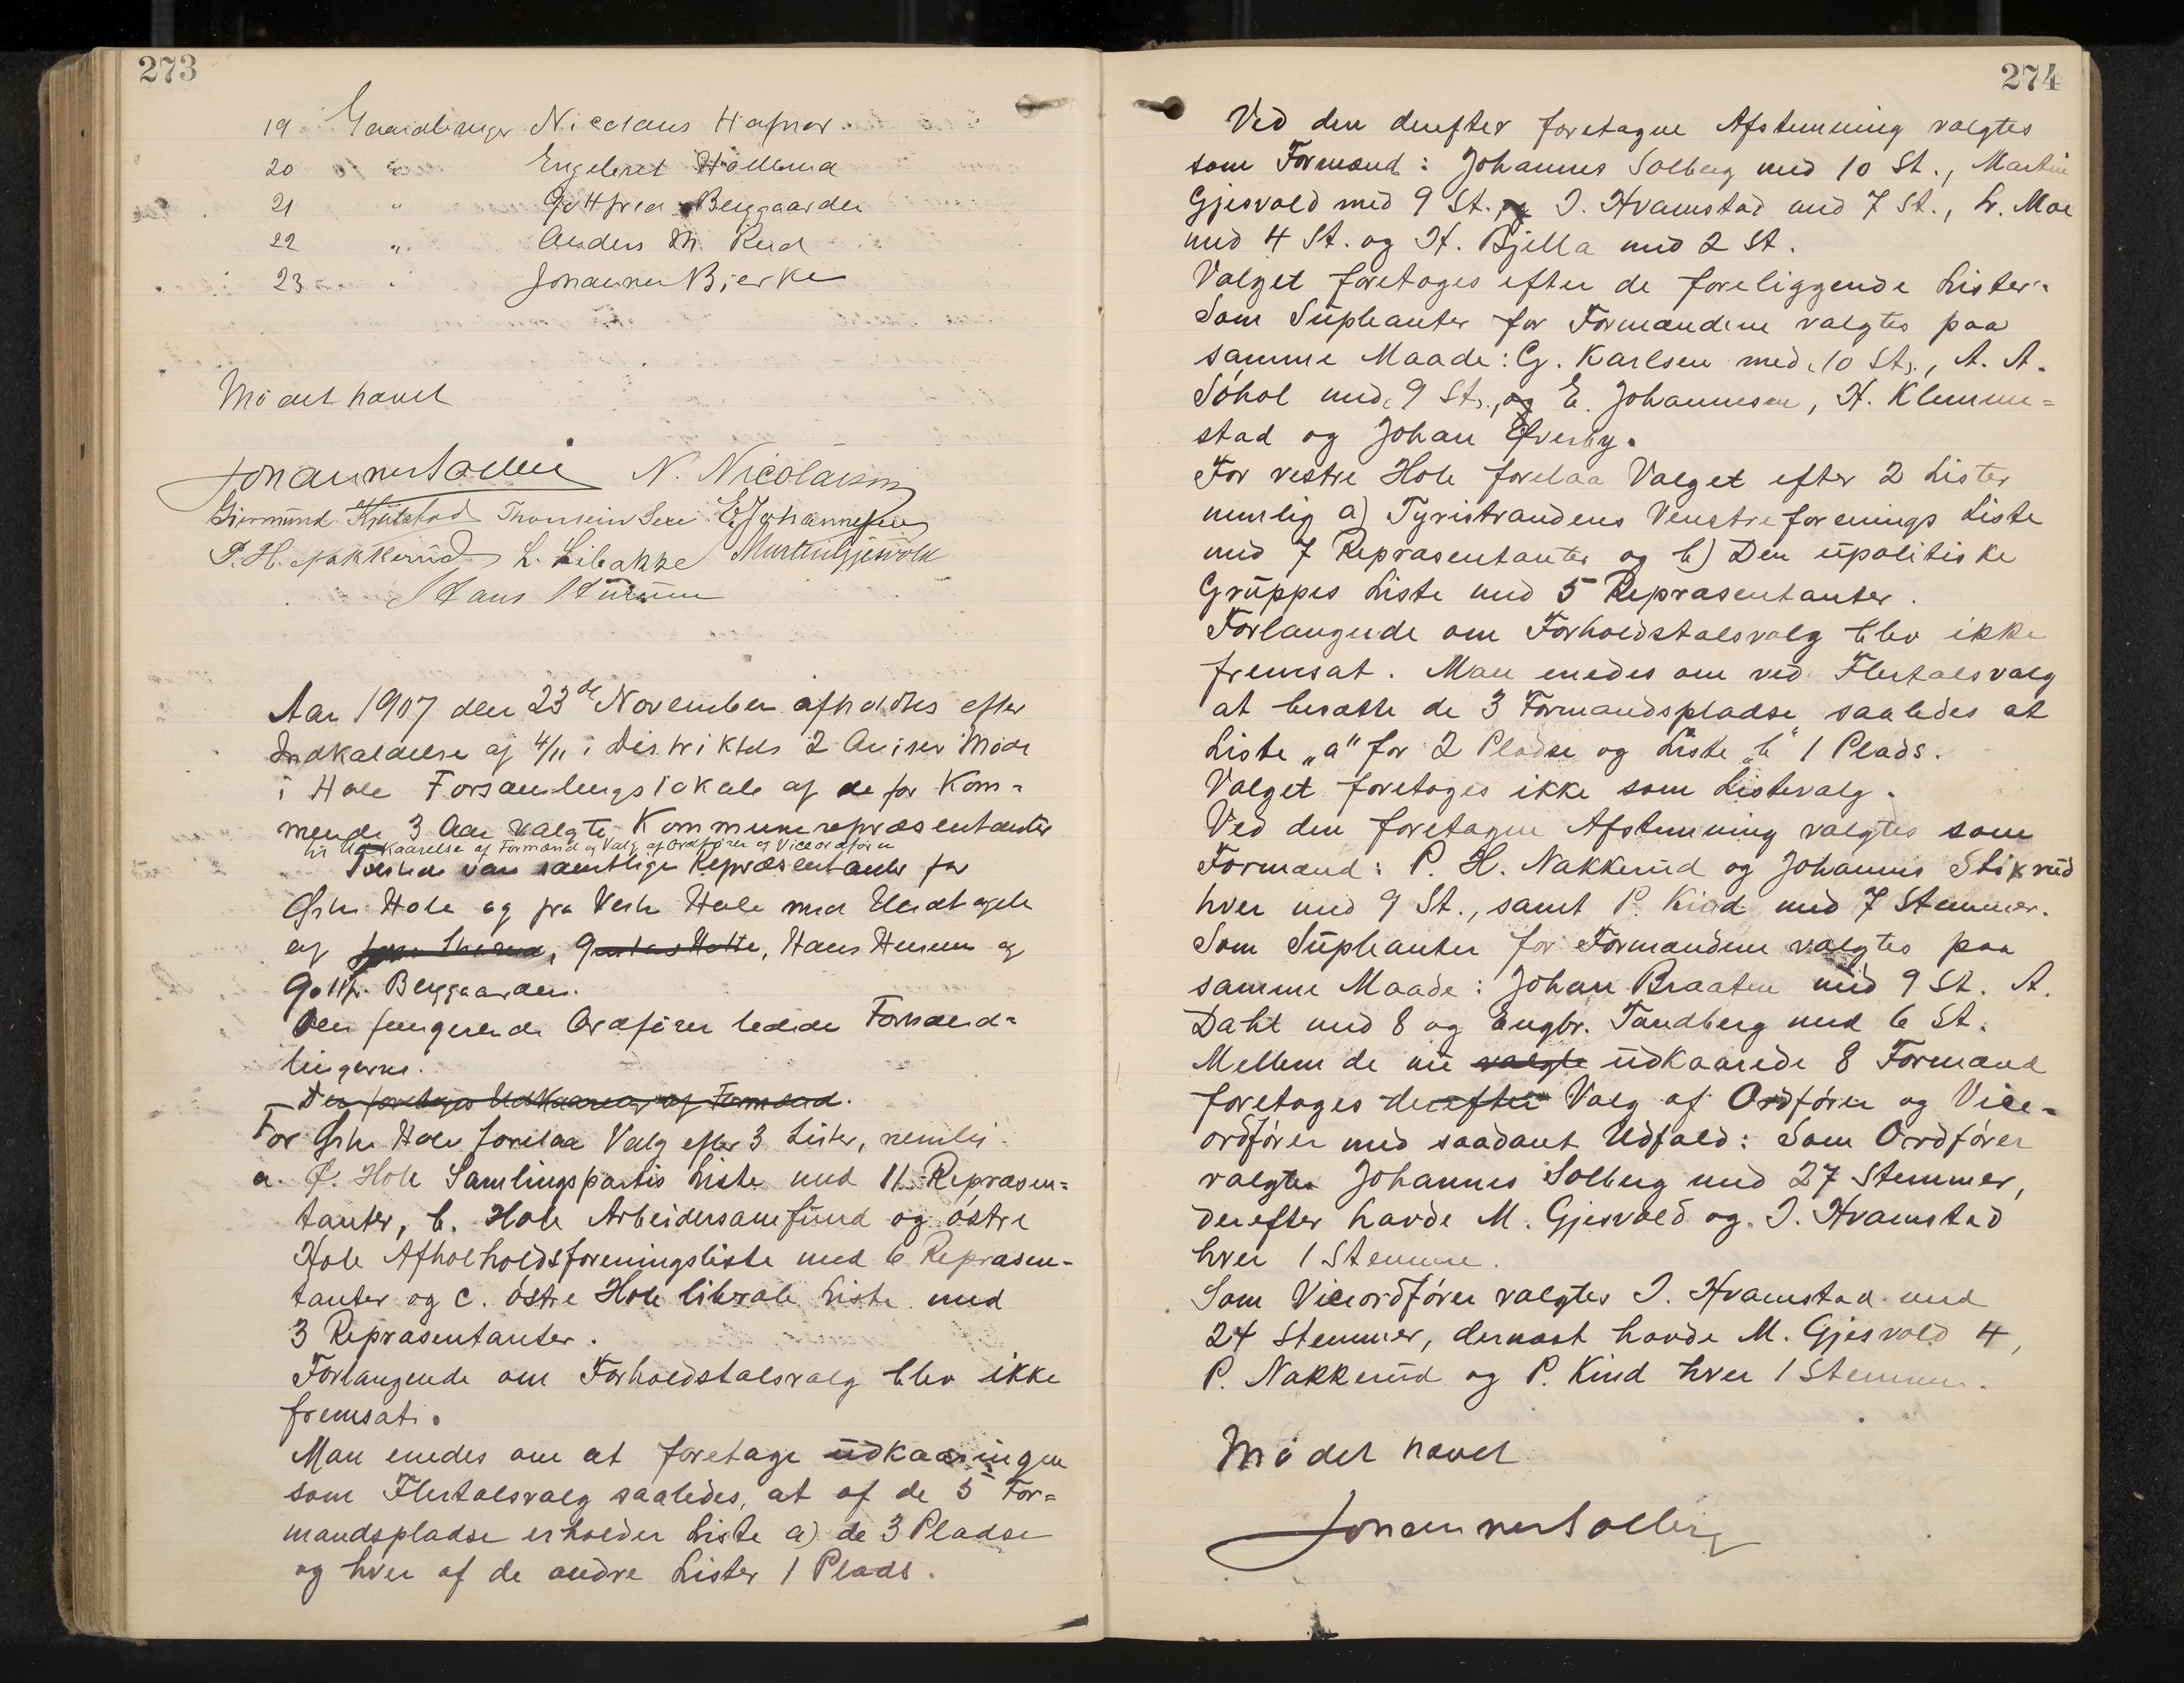 273
19 Gaardbruger Nicolaus Hafnor
20 " Engebret Hollerud
21 " Gottfred Berggaarden
22 " Anders M. Rud
23 " Johannes Bjerke
Mødet hævet
Johannes Solberg N. Nicolaisen
Gudmund Kjølstad Thorstein Sen E. Johannesen
P. H. Nakkerud L. Libakke Martin Gjesvold
Hans Hurum
Aar 1907 den 23de November afholdtes efter
Indkaldelse af 4/11 i Distriktets 2 Aviser Møde
i Hole Forsamlingslokale af de for Kom=
mende 3 Aar valgte Kommunerepræsentanter
til Udkaarelse af Formænd og Valg af Ordfører og Viceordfører
Tilstede var samtlige Repræsentanter for
Østre Hole og fra Vestre Hole med Undtagelse
af Hans Hurum og
Gottfr. Berggaarden.
Den fungerende Ordfører ledede Forhand=
lingerne.
Der foretages Udkaaring af Formænd.
For Østre Hole forelaa Valg efter 3 Lister, nemlig
a. Ø. Hole Samlingspartis Liste med 11 Repræsen=
tanter, b. Hole Arbeidersamfund og østre
Hole Afholdsforeningsliste med 6 Repræsen-
tanter og c. østre Hole liberale Liste med
3 Repræsentanter.
Forlangende om Forholdstalsvalg blev ikke
fremsat.
Man enedes om at foretage udkaaringen
som Flertalsvalg saaledes, at af de 5 For=
mandspladse erholder Liste a) de 3 Pladse
og hver af de andre Lister 1 Plads.
274
Ved den derefter foretagne Afstemning valgtes
som Formænd: Johannes Solberg med 10 St., Martin
Gjesvold med 9 St. og I. Hvamstad med 7 St., L. Moe
med 4 St. og H. Bjella med 2 St.
Valget foretages efter de foreliggende Lister.
Som Supleanter for Formændene valgtes paa
samme Maade: G. Karlsen med 10 St., A. A.
Søhol med 9 St., og E. Johannesen, H. Klemme=
stad og Johan Øverby.
For vestre Hole forelaa Valget efter 2 Lister
nemlig a) Tyristrandens Venstreforenings Liste
med 7 Repræsentanter og b) Den upolitiske
Gruppes Liste med 5 Repræsentanter.
Forlangende om Forholdstalsvalg blev ikke
fremsat. Man enedes om ved Flertalsvalg
at besætte de 3 Formandspladse saaledes at
Liste „a" for 2 Pladse og Liste „b" 1 Plads.
Valget foretages ikke som Listevalg.
Ved den foretagne Afstemning valgtes som
Formænd: P. H. Nakkerud og Johannes Stikrud
hver med 9 St., samt P. Kind med 7 Stemmer.
Som Supleanter for Formændene valgtes paa
samme Maade: Johan Braaten med 9 St. A.
Dahl med 8 og Engbr. Tandberg med 6 St.
Mellem de nu valgte udkaarede 8 Formænd
foretages derefter Valg af Ordfører og Vice-
ordfører med saadant Udfald: Som Ordfører
valgtes Johannes Solberg med 27 Stemmer,
derefter havde M. Gjesvold og I. Hvamstad
hver 1 Stemme.
Som Viceordfører valgtes I. Hvamstad med
24 Stemmer, dernæst havde M. Gjesvold 4,
P. Nakkerud og P. Kind hver 1 Stemme.
Mødet hævet
Johannes Solberg